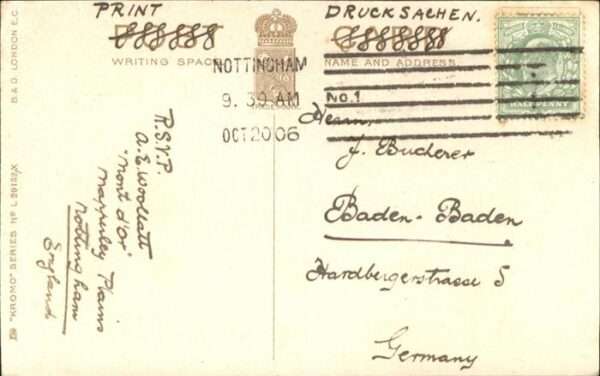 PRINT
DRUCKSACHEN.
WRITING SPACE
NAME AND ADDRESS
NOTTINGHAM
9. 39 AM
OCT 20 06
No. 1
HALFPENNY
R.S.V.P.
A. E. Woollatt
"Mont d'Or"
Mapperley Plains
Nottingham
England
Herrn,
J. Buderer
Baden-Baden
Hardbergerstrasse 5
Germany
B. & D. LONDON E.C.
"KROMO" SERIES No L. 29152X